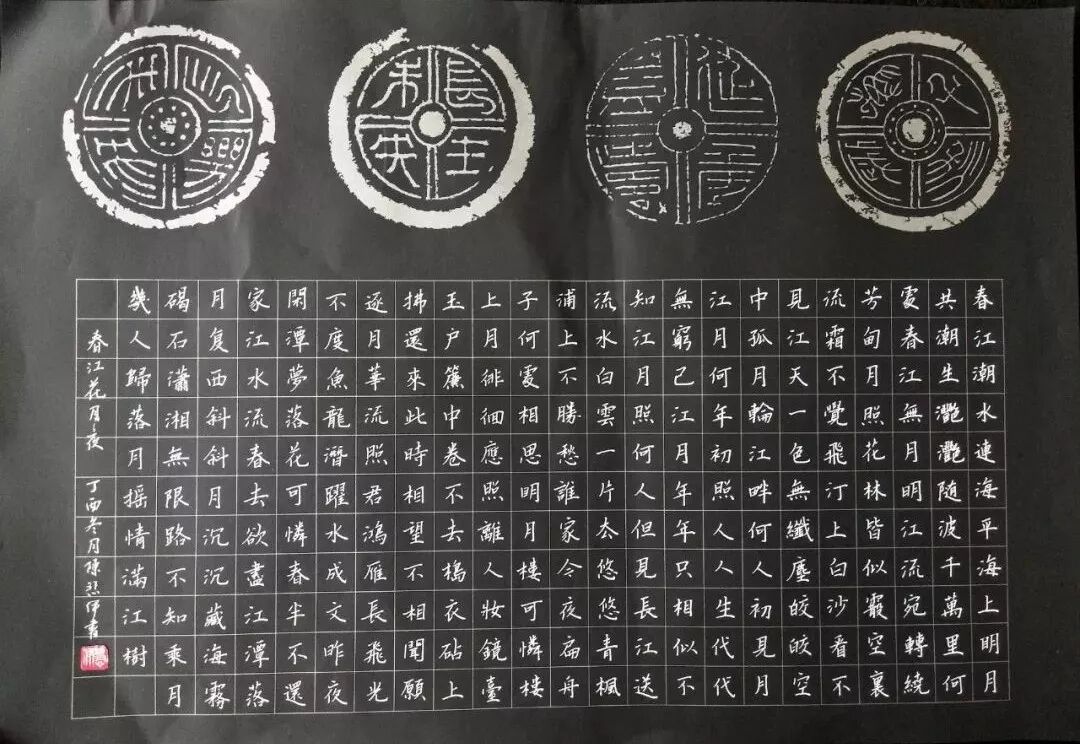 長生未央
春江潮水連海平海上明月
共潮生灔灔随波千萬里何
處春江無月明江流宛轉繞
芳甸月照花林皆似霰空裏
流霜不覺飛汀上白沙看不
見江天一色無纖塵皎皎空
中孤月輪江畔何人初見月
江月何年初照人人生代代
無窮已江月年年只相似不
知江月照何人但見長江送
流水白雲一片去悠悠青楓
浦上不勝愁誰家今夜扁舟
子何處相思明月樓可憐樓
上月徘徊應照離人妝鏡臺
玉户簾中卷不去搗衣砧上
拂還來此時相望不相聞願
逐月華流照君鴻雁長飛光
不度魚龍潛躍水成文昨夜
閑潭夢落花可憐春半不還
家江水流春去欲盡江潭落
月复西斜斜月沉沉藏海霧
碣石瀟湘無限路不知乘月
幾人歸落月摇情滿江樹
春江花月夜 丁酉冬月陳